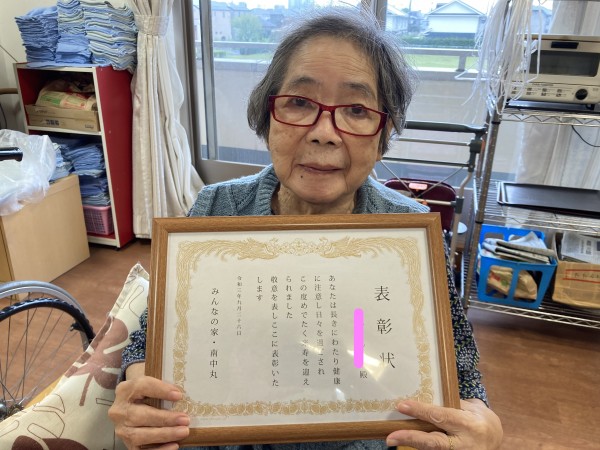 表彰状
殿
あなたは長きにわたり健康
に注意し日々を され
この度めでたく 寿を迎え
られました
敬意を表しここに表彰いた
します
令和 年 月二十八日
みんなの家・南中丸